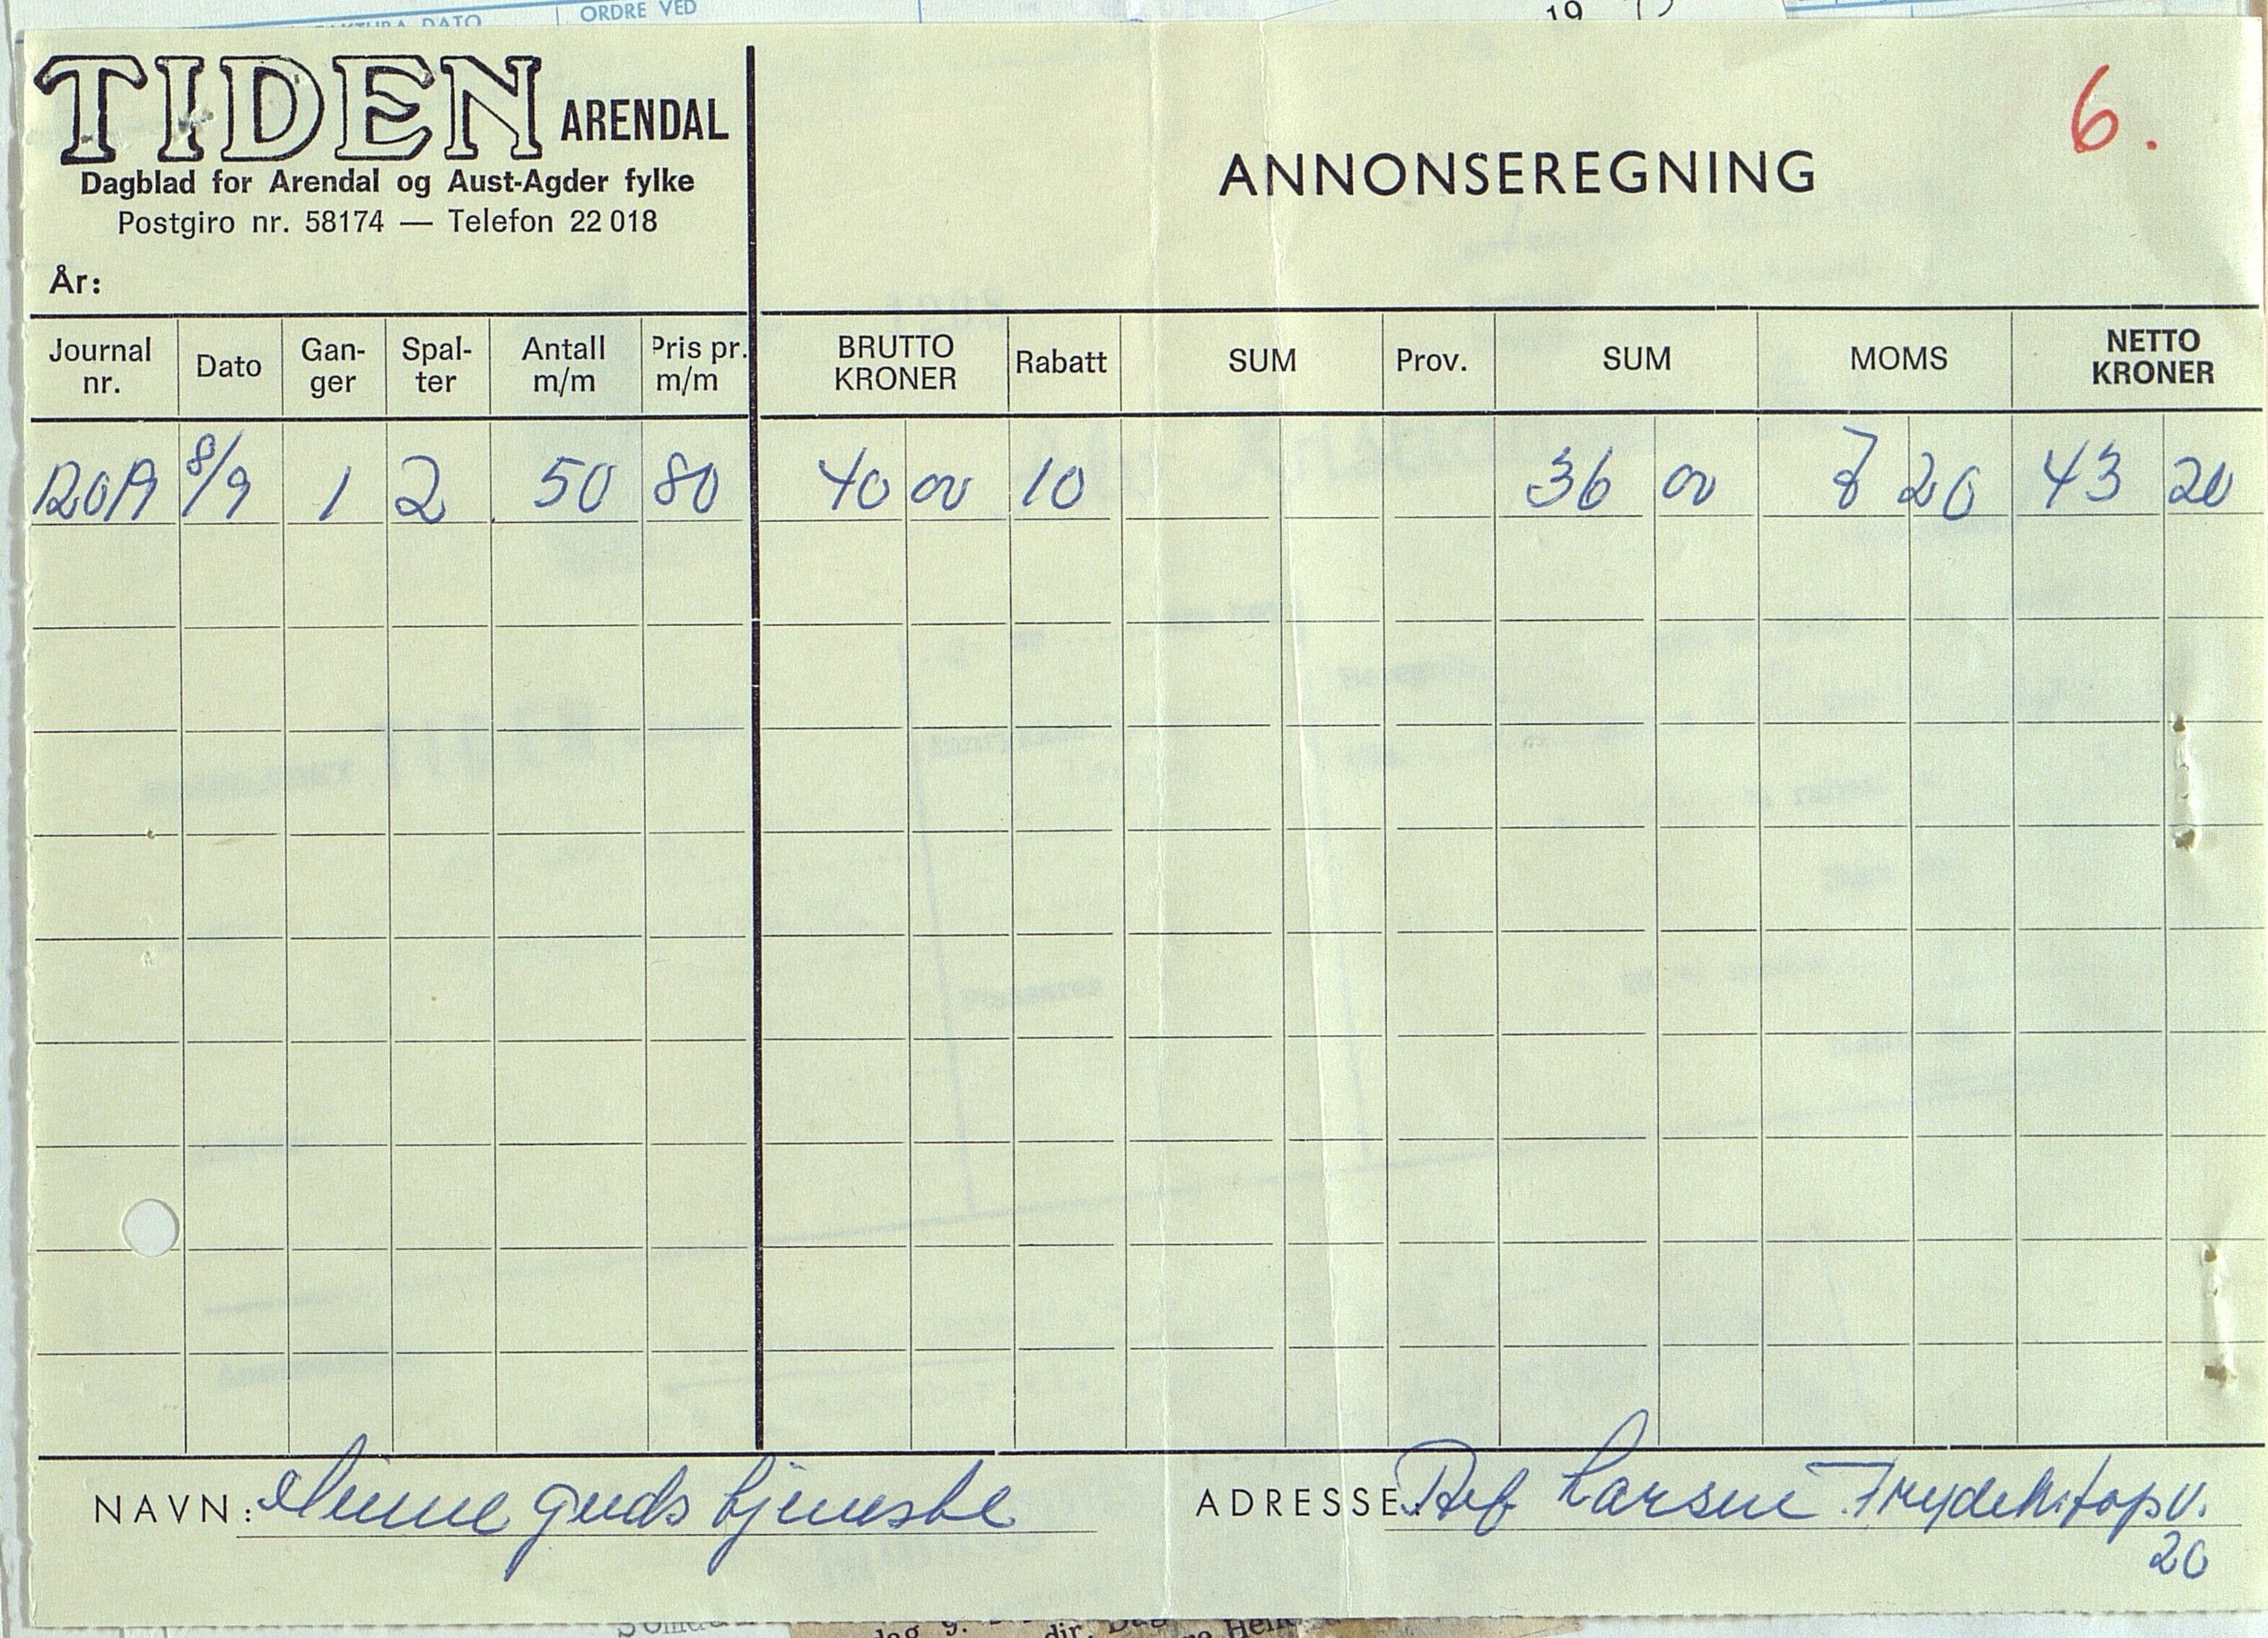 ORDRE VED
19
TIDEN ARENDAL
Dagblad for Arendal og Aust-Agder fylke
Postgiro nr. 58174 — Telefon 22 018
År:
ANNONSEREGNING
6.
Journal nr. Dato Gan-ger Spal-ter Antall m/m Pris pr. m/m BRUTTO KRONER Rabatt SUM Prov. SUM MOMS NETTO KRONER
8/9 1 2 50 80 40 00 10 36 00 7 20 43 20
NAVN: guds tjeneste
ADRESSE: Larsen
20